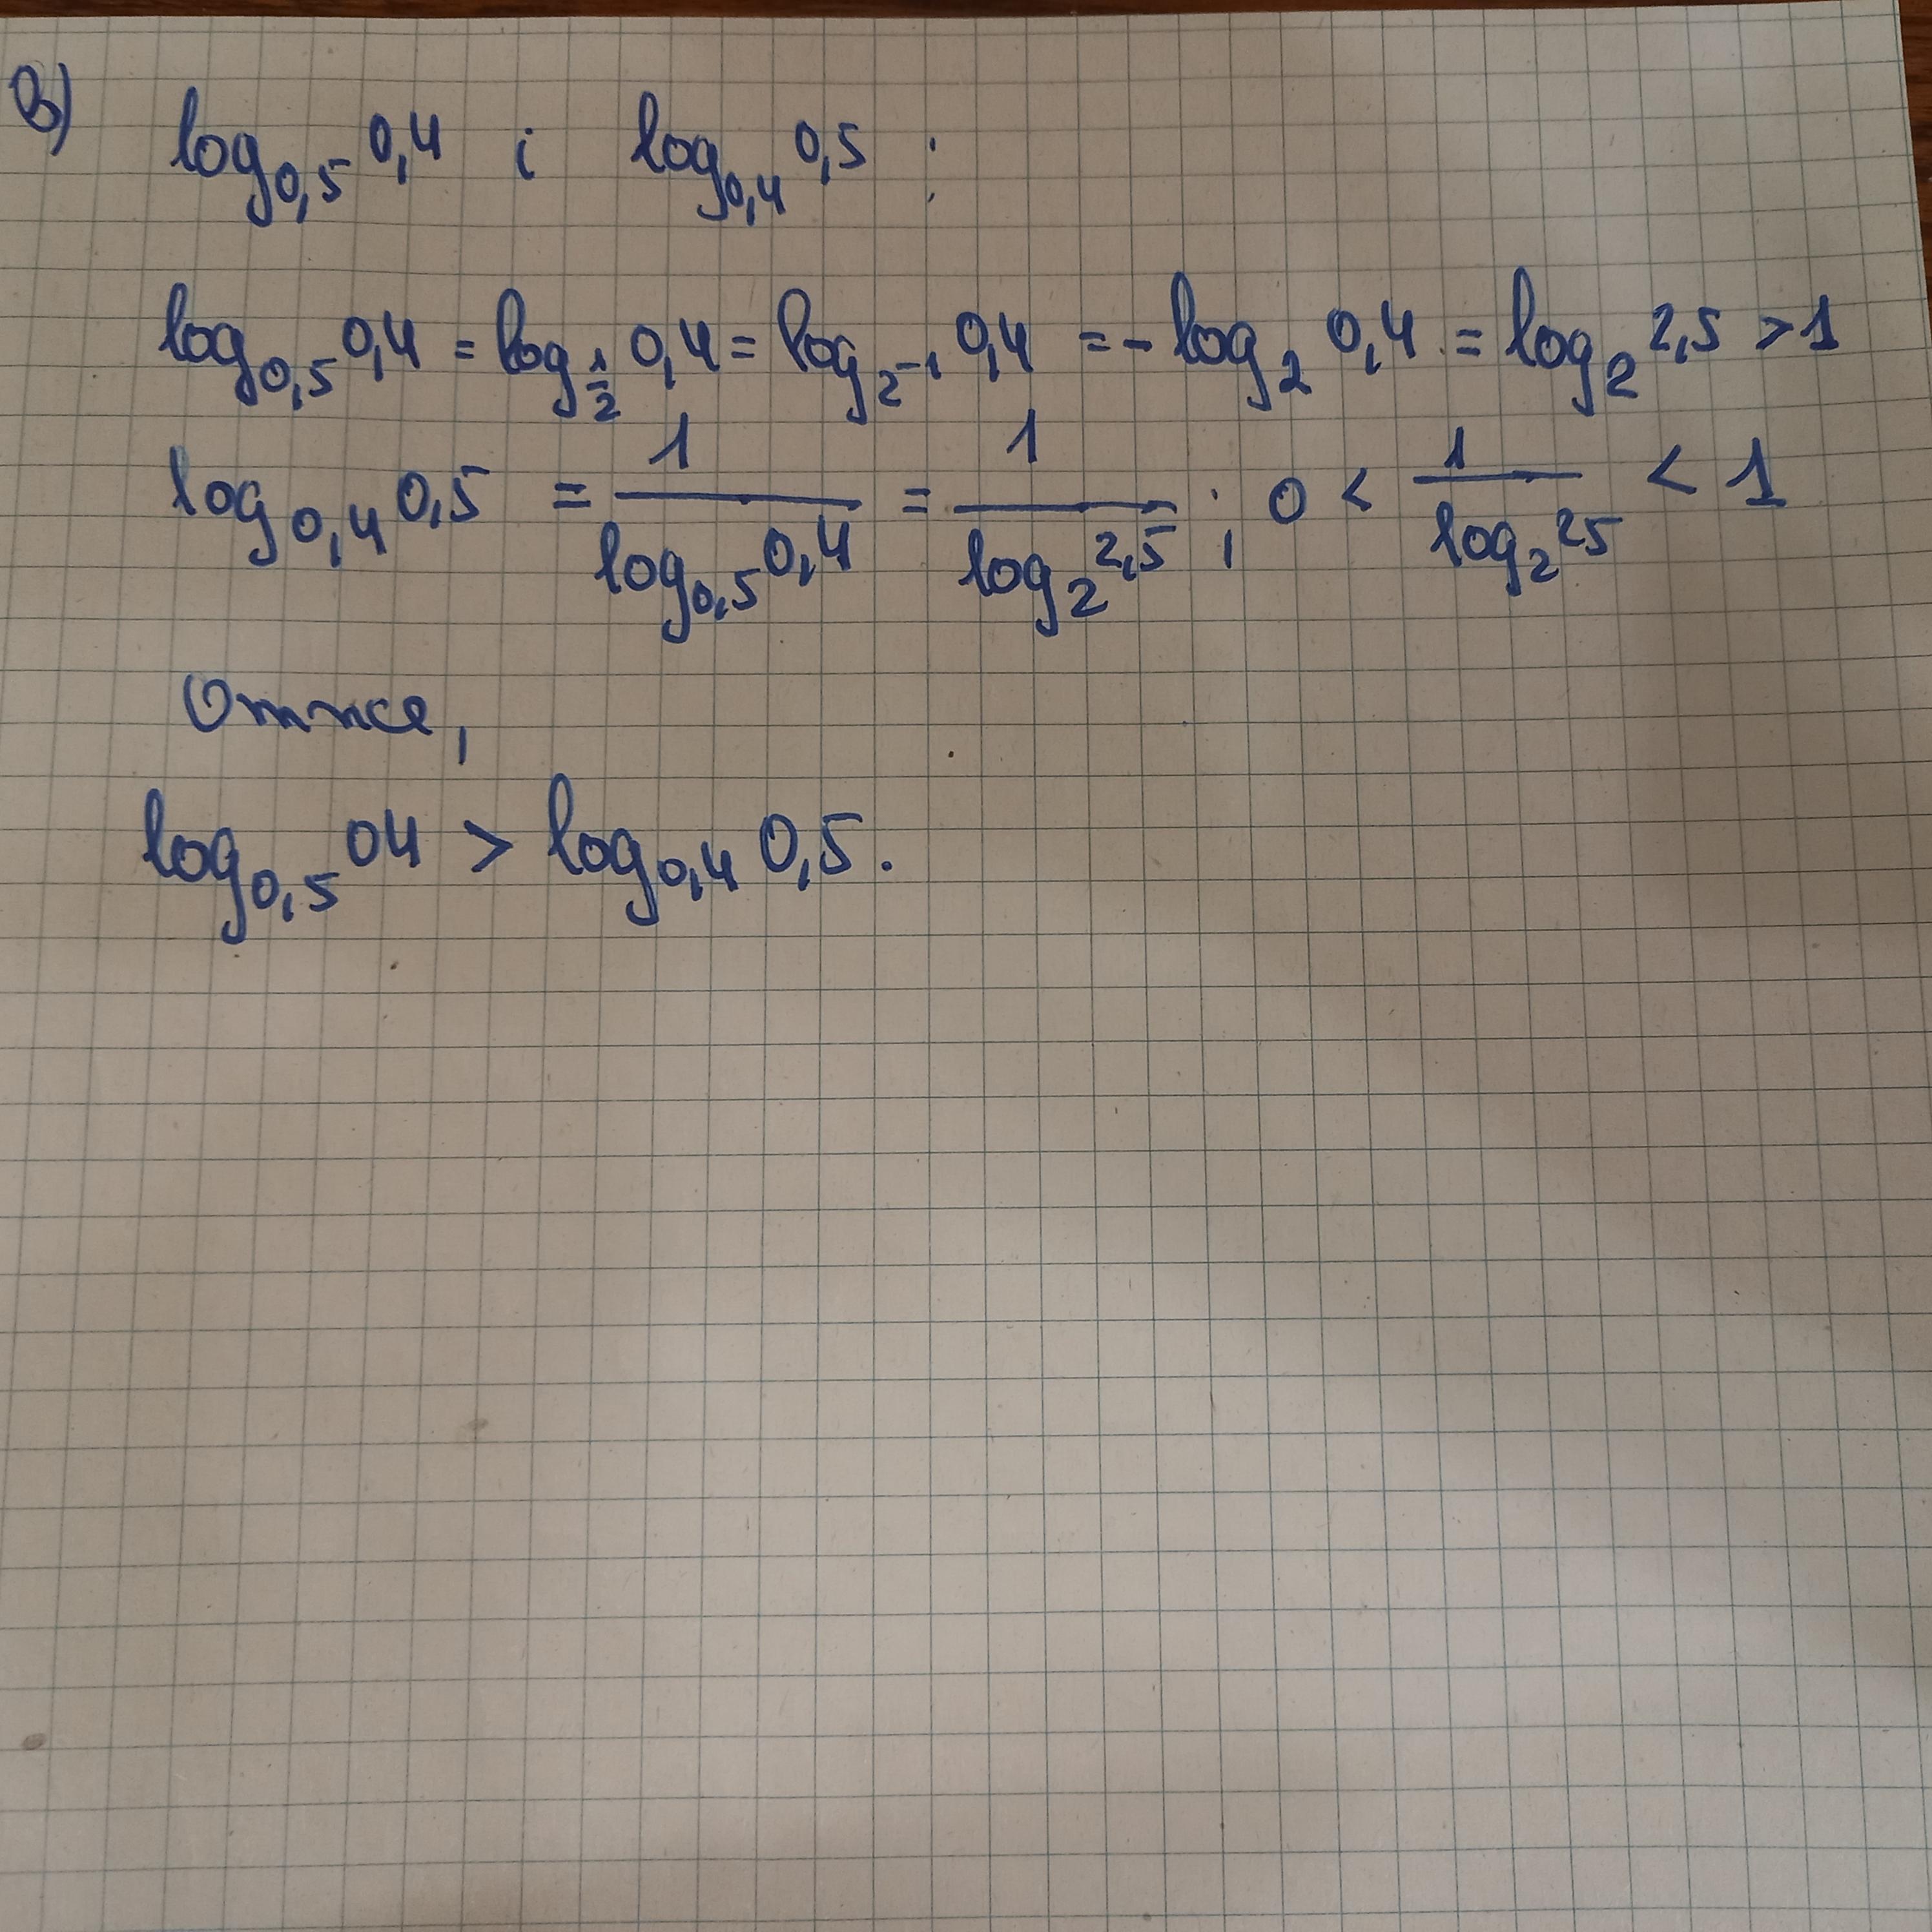 в) log₀,₅ 0,4 і log₀,₄ 0,5 ;
log₀,₅ 0,4 = log_{1/2} 0,4 = log_{2⁻¹} 0,4 = - log₂ 0,4 = log₂ 2,5 > 1
log₀,₄ 0,5 = 1/(log₀,₅ 0,4) = 1/(log₂ 2,5) ; 0 < 1/(log₂ 25) < 1
Отже,
log₀,₅ 04 > log₀,₄ 0,5.